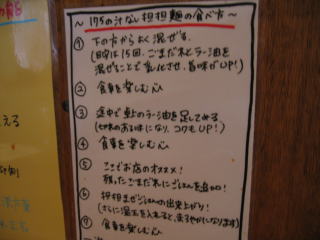 ～175の汁なし担担麺の食べ方～
① 下の方からよく混ぜる。
(目安は15回、ごまだれとラー油を
混ぜることで乳化させ、旨味がUP!)
② 食事を楽しむ心
③ 途中で卓上のラー油を足してみる
(七味のある味になり、コクもUP!)
④ 食事を楽しむ心
⑤ ここでお店のオススメ!
残ったごまだれにごはんを追加!
⑥ 担担まぜごはんの出来上がり!
(さらに温玉を入れると、まろやかになります)
⑦ 食事を楽しむ心
える